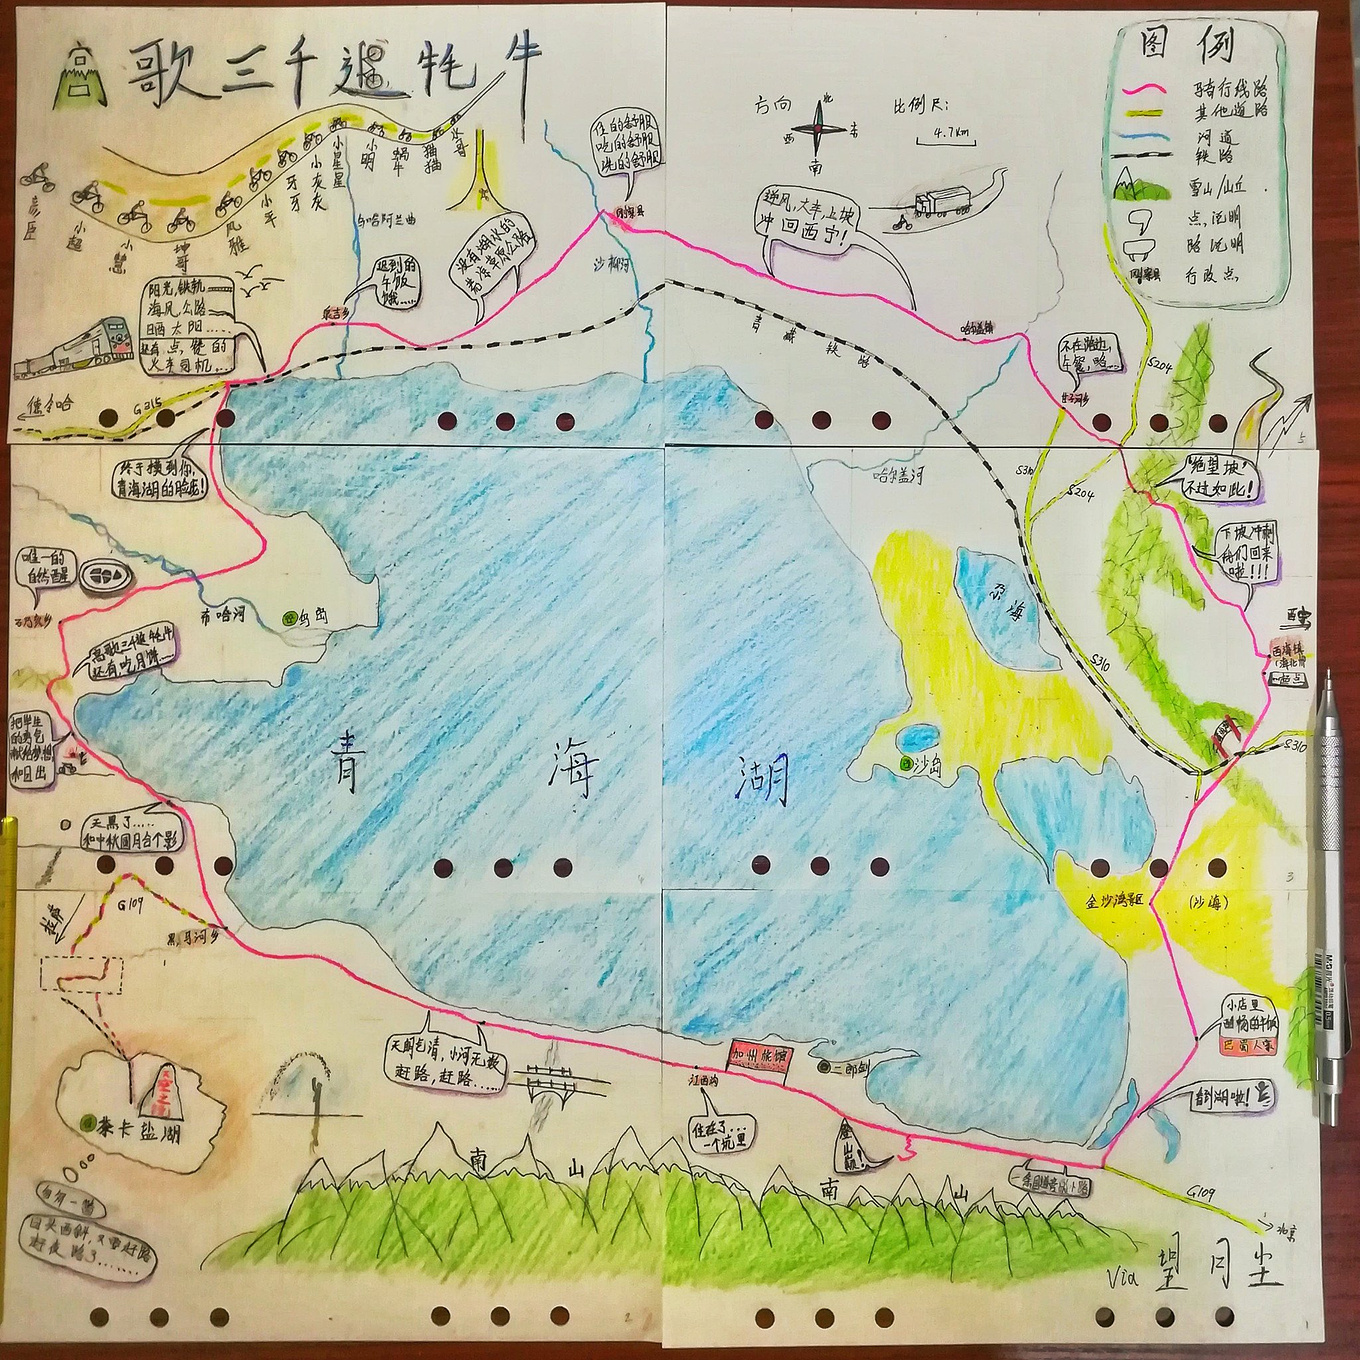 高歌三千追牦牛
方向
北
西
东
南
比例尺:
4.7km
图例
骑行线路
其他道路
河道
铁路
雪山/山丘
点说明
路说明
行政点
彦臣
小超
小慧
坤哥
风雅
小羊
牙牙
小灰灰
小星星
小明
蜗牛
猫猫
住的舒服
吃的舒服
洗的舒服
刚察县
逆风,大车,上坡
冲回西宁!
没有湖水的
青海草原公路
迟到的
午饭
饿……
泉吉乡
沙柳河
阳光,铁轨
海风,公路
日晒太阳……
火车司机…
德令哈
G315
青藏铁路
哈尔盖镇
不在路边,
午餐,略…
S204
哈尔盖河
S310
S204
"绝望坡"
不过如此!
终于摸到你,
青海湖的脸庞!
下坡冲刺
我们回来
啦!!!
唯一的
自然醒
石乃亥乡
布哈河
鸟岛
高歌三千追牦牛
还有,吃月饼……
尕海
S310
西海镇
S310
把毕生
的勇气
献给梦想
和日出
青海湖
沙岛
天黑了……
和中秋圆月合个影
G109
拉萨
黑马河乡
金沙湾景区
(沙海)
小店里
天朗气清,小河无数
赶路,赶路……
加州旅馆
江西沟
二郎剑
看到湖啦!
住在了…
一个坑里
登山崩!
茶卡盐湖
南山
南山
G109
北京
日头西斜,又要赶路
赶夜路了……
Via 望月尘
4
3
2
1